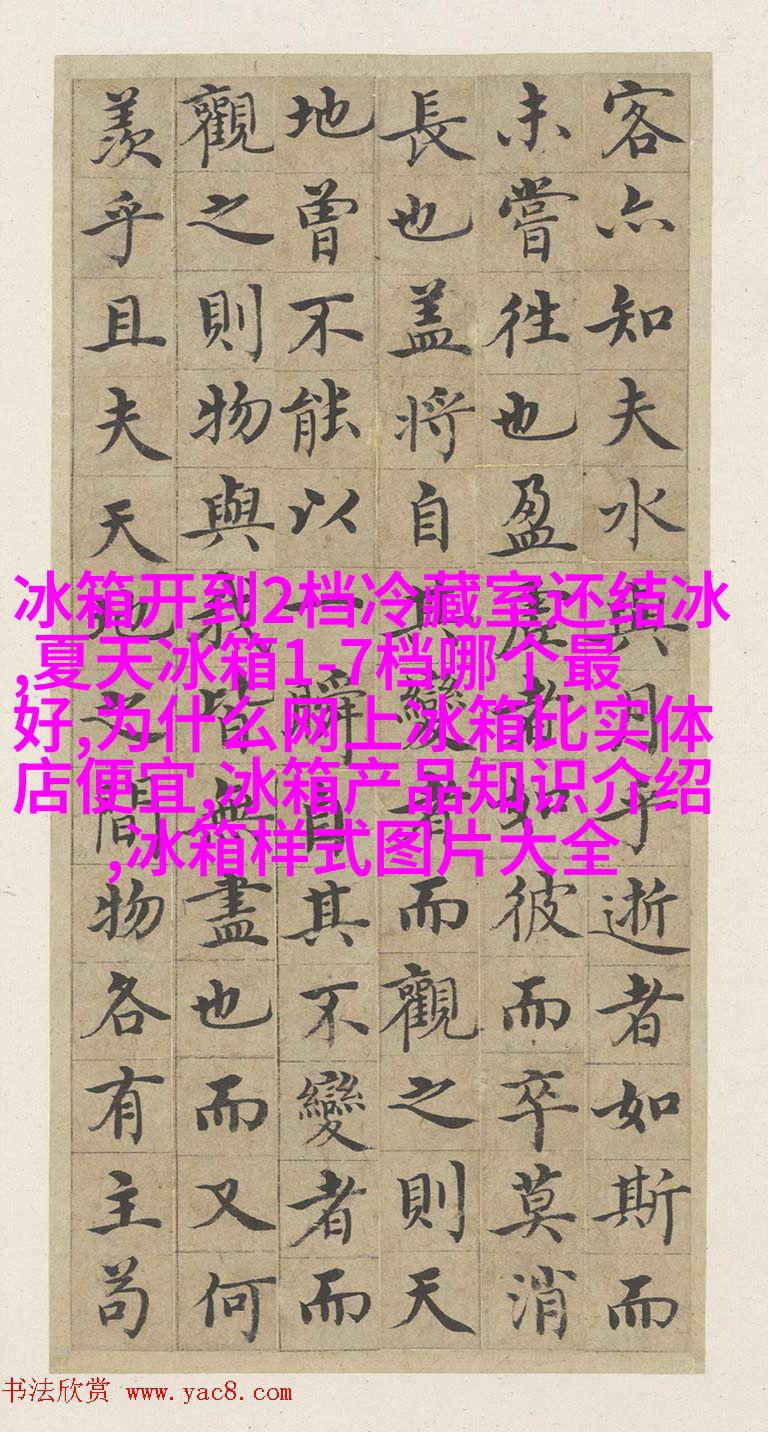 客亦知夫水與月乎逝者如斯而
未嘗徃也盈虛者如彼而卒莫消
長也盖將自其變者而觀之則天
地曾不能以一瞬自其不變者而
觀之則物與我皆無盡也而又何
羨乎且夫天地之間物各有主苟
冰箱开到2档冷藏室还结冰
,夏天冰箱1-7档哪个最
好,为什么网上冰箱比实体
店便宜,冰箱产品知识介绍
,冰箱样式图片大全
书法欣赏 www.yac8.com